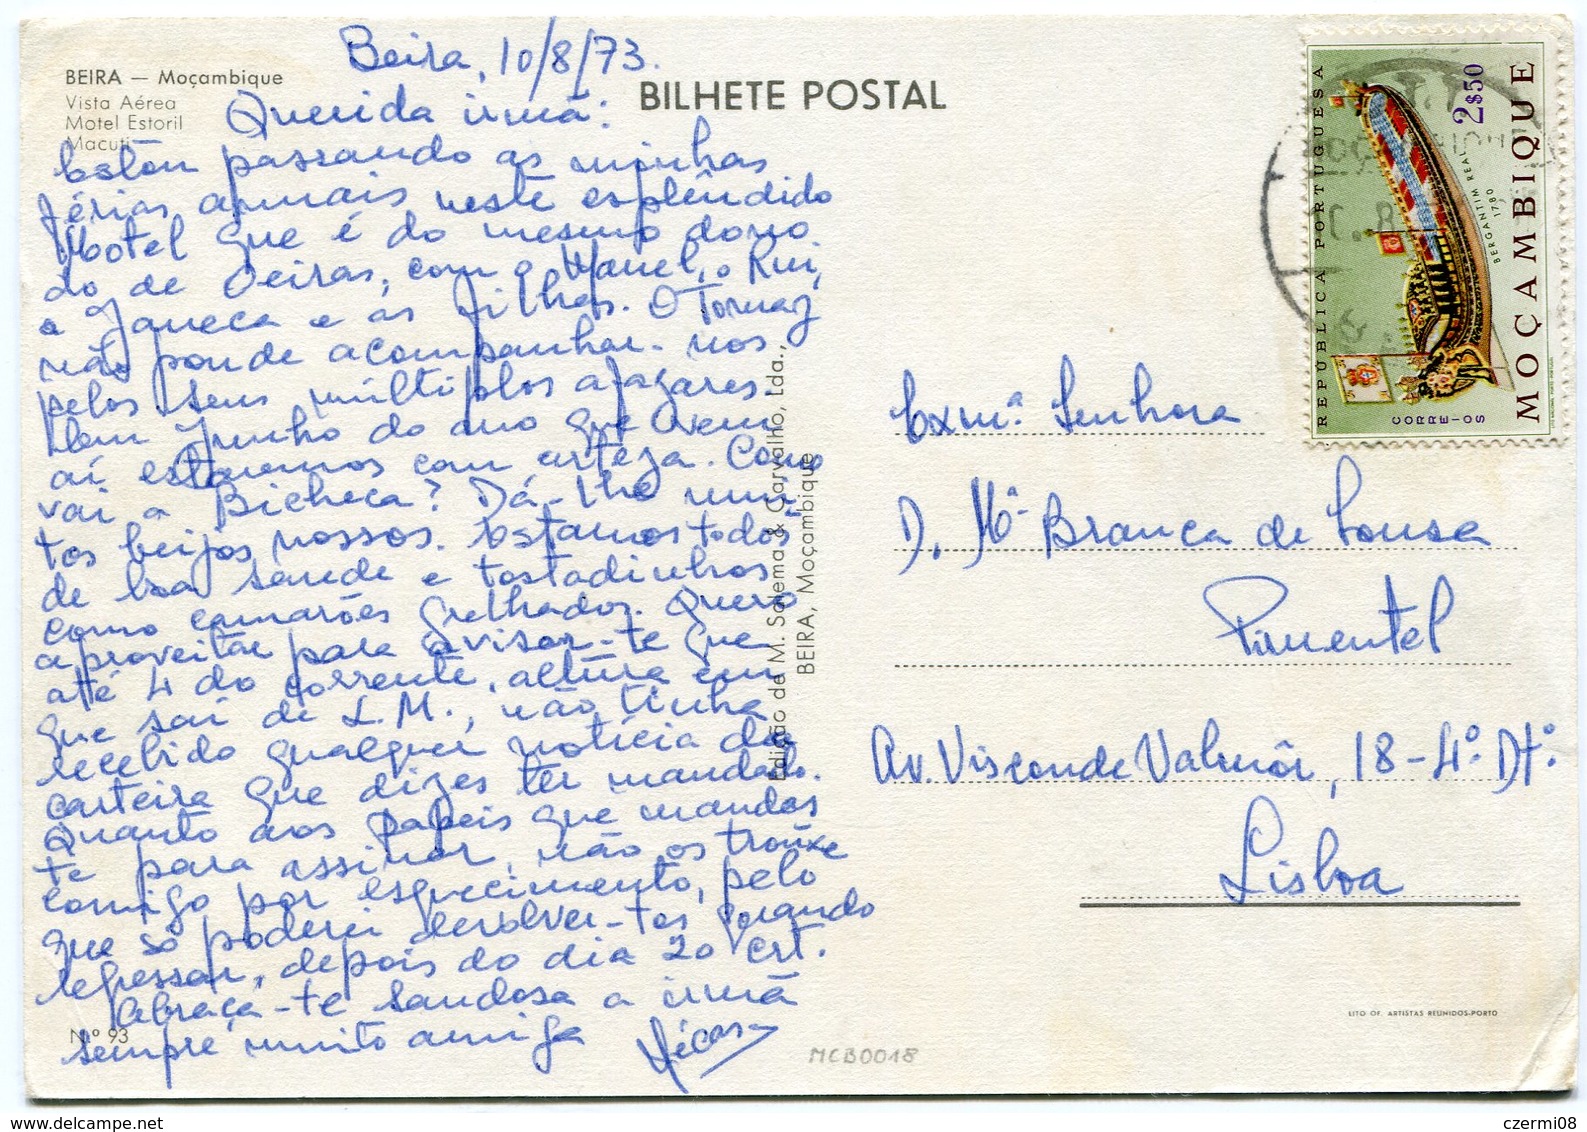 BEIRA — Moçambique
Vista Aérea
Motel Estoril
Macuti
BILHETE POSTAL
Beira, 10/8/73.
Querida irmã:
Estou passando as minhas
férias anuais neste esplêndido
Motel que é do mesmo dono
do de Oeiras, com o Manel, o Rui,
a Janeca e as filhas. O Tomaz
não poude acompanhar-nos
pelos seus múltiplos afazares.
Em Junho do ano que vem
aí estaremos com certeza. Como
vai a Bicheca? Dá-lhe mui-
tos beijos nossos. Estamos todos
de boa saude e tostadinhos
como camarões grelhados. Quero
aproveitar para avisar-te que
até 4 do corrente, altura em
que saí de L.M., não tinha
recebido qualquer notícia da
carteira que dizes ter mandado.
Quanto aos papeis que mandas
te para assinar, não os trouxe
comigo por esquecimento, pelo
que só poderei devolver-tos quando
regressar, depois do dia 20 crt.
Abraça-te saudosa a irmã
sempre muito amiga
Nº 93
MCB0018
Edição de M. Salema & Carvalho, Lda.,
BEIRA, Moçambique
REPÚBLICA PORTUGUESA
2$50
BERGANTIM REAL
1780
MOÇAMBIQUE
CORREIOS
Exmª Senhora
D. Mª Branca de Sousa
Pimentel
Av. Visconde Valmôr, 18-4º Dtº
Lisboa
LITO OF. ARTISTAS REUNIDOS-PORTO
www.delcampe.net
czermi08